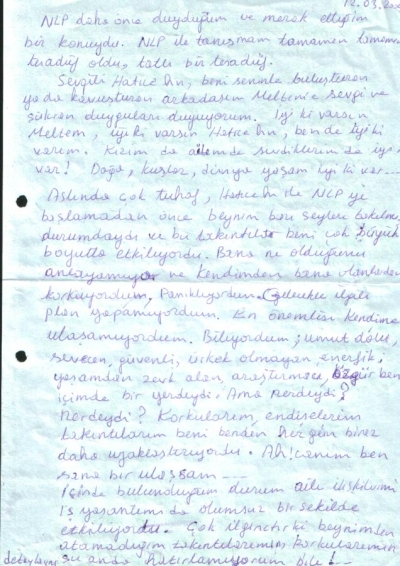 12.03.200
NLP daha önce duyduğum ve merak ettiğim
bir konuydu. NLP ile tanışmam tamamen
tesadüf oldu, tatlı bir tesadüf.
Sevgili Hatice Hn, beni seninle buluşturan
ya da kavuşturan arkadaşım Meltem'e sevgi ve
şükran duyguları duyuyorum. İyi ki varsın
Meltem, iyi ki varsın Hatice Hn, ben de iyi ki
varım. Kızım da ailem de sevdiklerim de iyi ki
var! Doğa, kuşlar, dünya yaşam iyi ki var...
Aslında çok tuhaf, Hatice Hn ile NLP yi
başlamadan önce beynim bazı şeyleri
durumdaydı ve bu takıntılar beni çok büyük
boyutta etkiliyordu. Bana ne olduğunu
anlayamıyor ve kendimden bana olanlardan
korkuyordum, Panikliyordum. Gelecekle ilgili
plan yapamıyordum. En önemlisi kendime
ulaşamıyordum. Biliyordum; umut dolu,
sevecen, güvenli, ürkek olmayan, enerjik,
yaşamdan zevk alan, araştırmacı, özgür ben
içimde bir yerdeydi. Ama nerdeydi?
Nerdeydi? Korkularım, endişelerim
takıntılarım beni benden her gün biraz
daha uzaklaştırıyordu. Ah! canım ben
bana bir ulaşsam ...
İçinde bulunduğum durum aile ilişkilerimi
iş yaşantımı da olumsuz bir şekilde
etkiliyordu. Çok ilginçtir ki beynimden
atamadığım takıntılarımın korkularımın
detaylarını şu anda hatırlamıyorum bile!